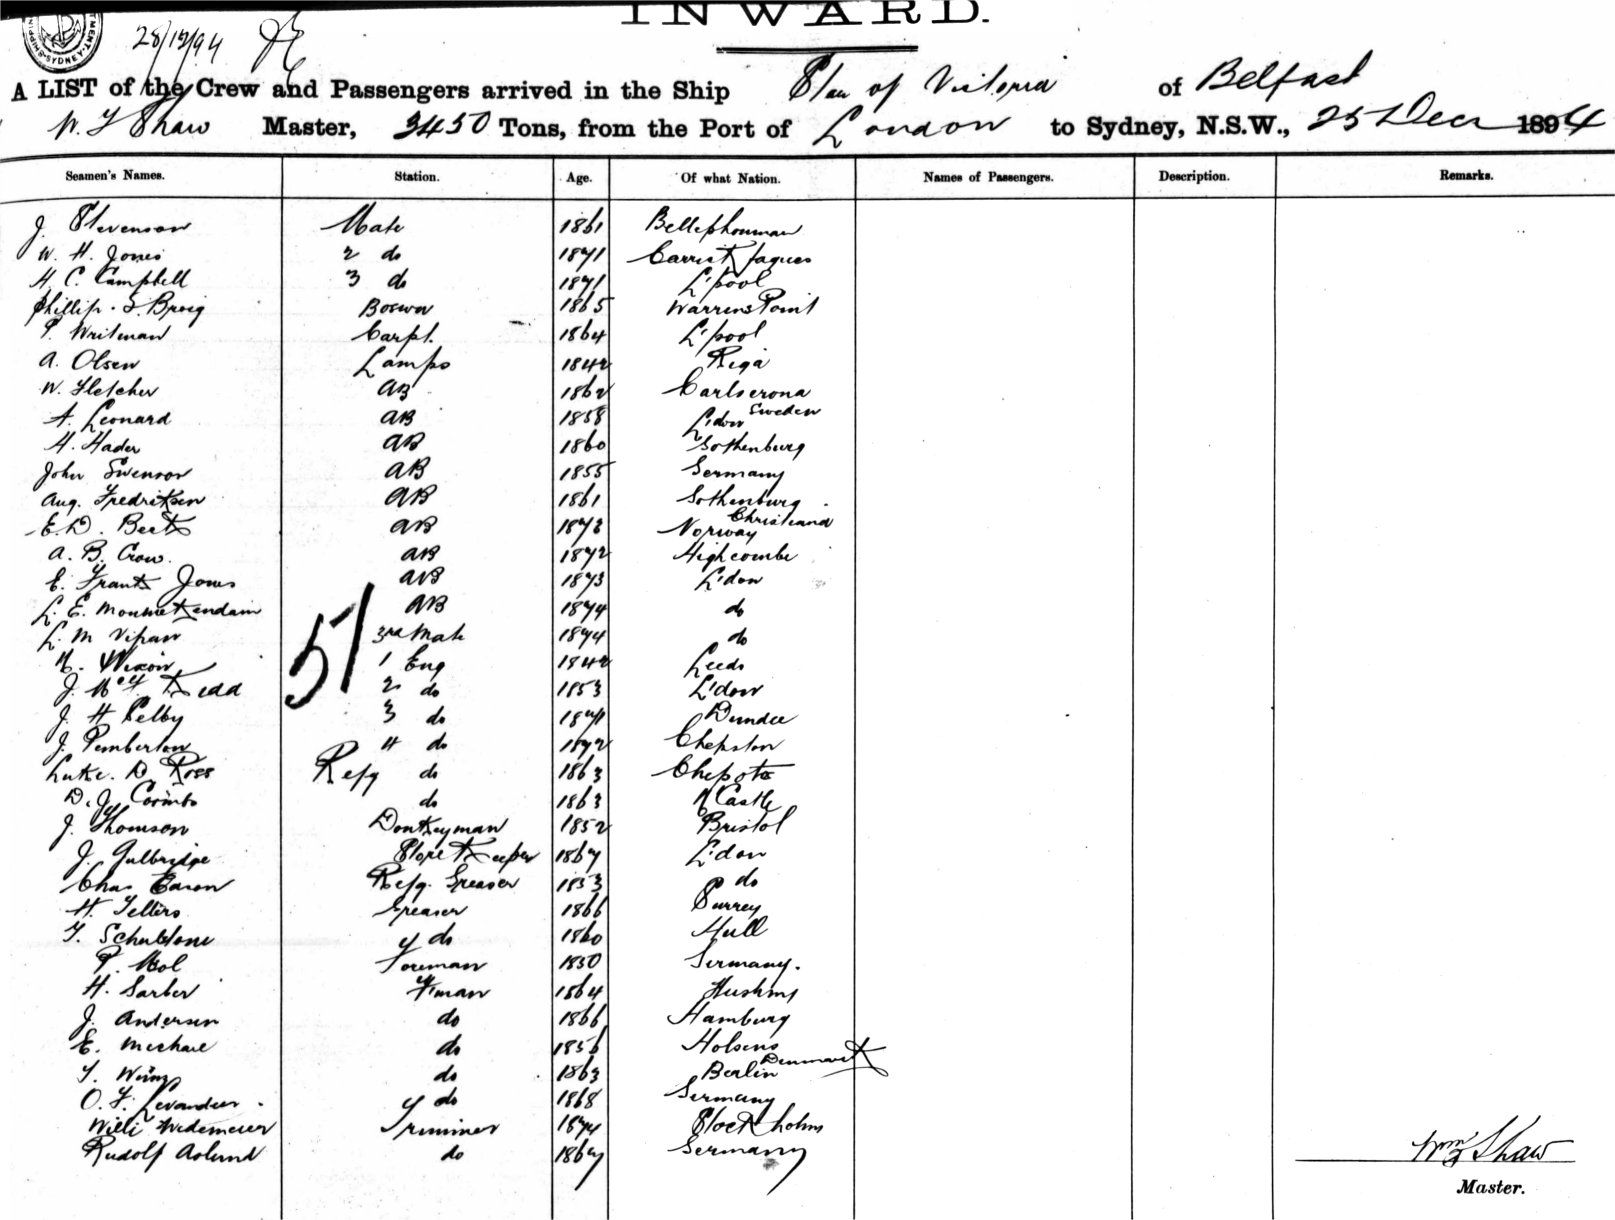 28/12/94
INWARD.
A LIST of the Crew and Passengers arrived in the Ship Star of Victoria of Belfast
W. J Shaw Master, 3450 Tons, from the Port of London to Sydney, N.S.W., 25 Decr 1894
Seamen's Names. Station. Age. Of what Nation. Names of Passengers. Description. Remarks.
J. Stevenson Mate 1861
W. H. Jones 2 do 1871
H. C. Campbell 3 do 1871 L'pool
Phillip 1865 Warrens Point
P. Writman Carpt. 1864 L'pool
A. Olsen Lamps 1842 Riga
W. Fletcher AB 1862 Carlscrona
A. Leonard AB 1858 L'don Sweden
H. Hader AB 1860 Gothenburg
John Swenson AB 1855 Germany
Aug. Fredriksen AB 1861 Gothenburg
E. D. AB 1873 Norway Christiana
A. B. Crow. AB 1872 Highcombe
E. Frank Jones AB 1873 L'don
L. E. AB 1874 do
L. M 3rd Mate 1874 do
Nixon 1 Eng 1842 Leeds
J. 2 do 1853 L'don
J. H Selby 3 do 1871 Dundee
J. Pemberton 4 do 1872 Chepston
Luke. D Ross Refg do 1863
D. J. do 1863 N Castle
J. Thomson Donkeyman 1852 Bristol
J. Gulbridge Store Keeper 1867 L'don
Chas Refg. Greaser 1853 do
H. Tellers Greaser 1866 Surrey
do 1860 Hull
P. Mol Foreman 1850 Germany.
H. Sarber F'man 1864
J. Andersen do 1866 Hamburg
E. do 1856 Denmark
do 1863 Berlin
O. F. do 1868 Germany
Willi Wedemeier Trimmer 1874 Stockholm
Rudolf Aslund do 1867 Germany
51
Wm J Shaw
Master.